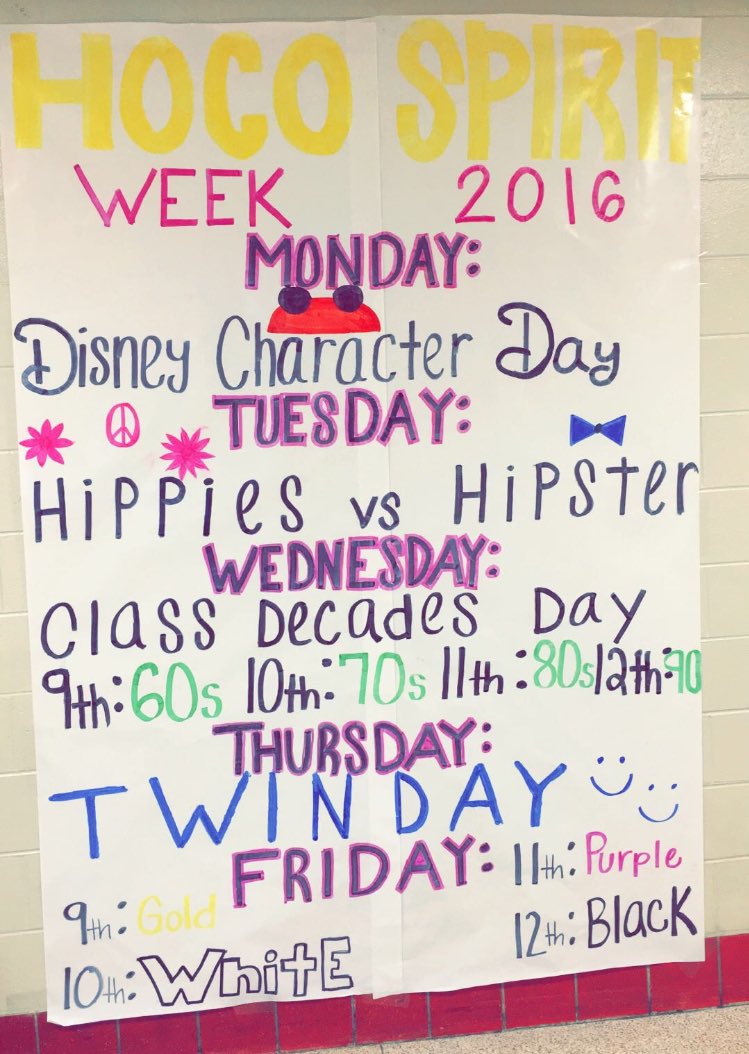 HOCO SPIRIT
WEEK 2016
MONDAY:
Disney Character Day
TUESDAY:
HiPPies vs HiPSter
WEDNESDAY:
Class Decades Day
9th: 60s 10th: 70s 11th: 80s 12th: 90
THURSDAY:
TWIN DAY
FRIDAY:
9th: Gold
10th: WhitE
11th: Purple
12th: BlacK